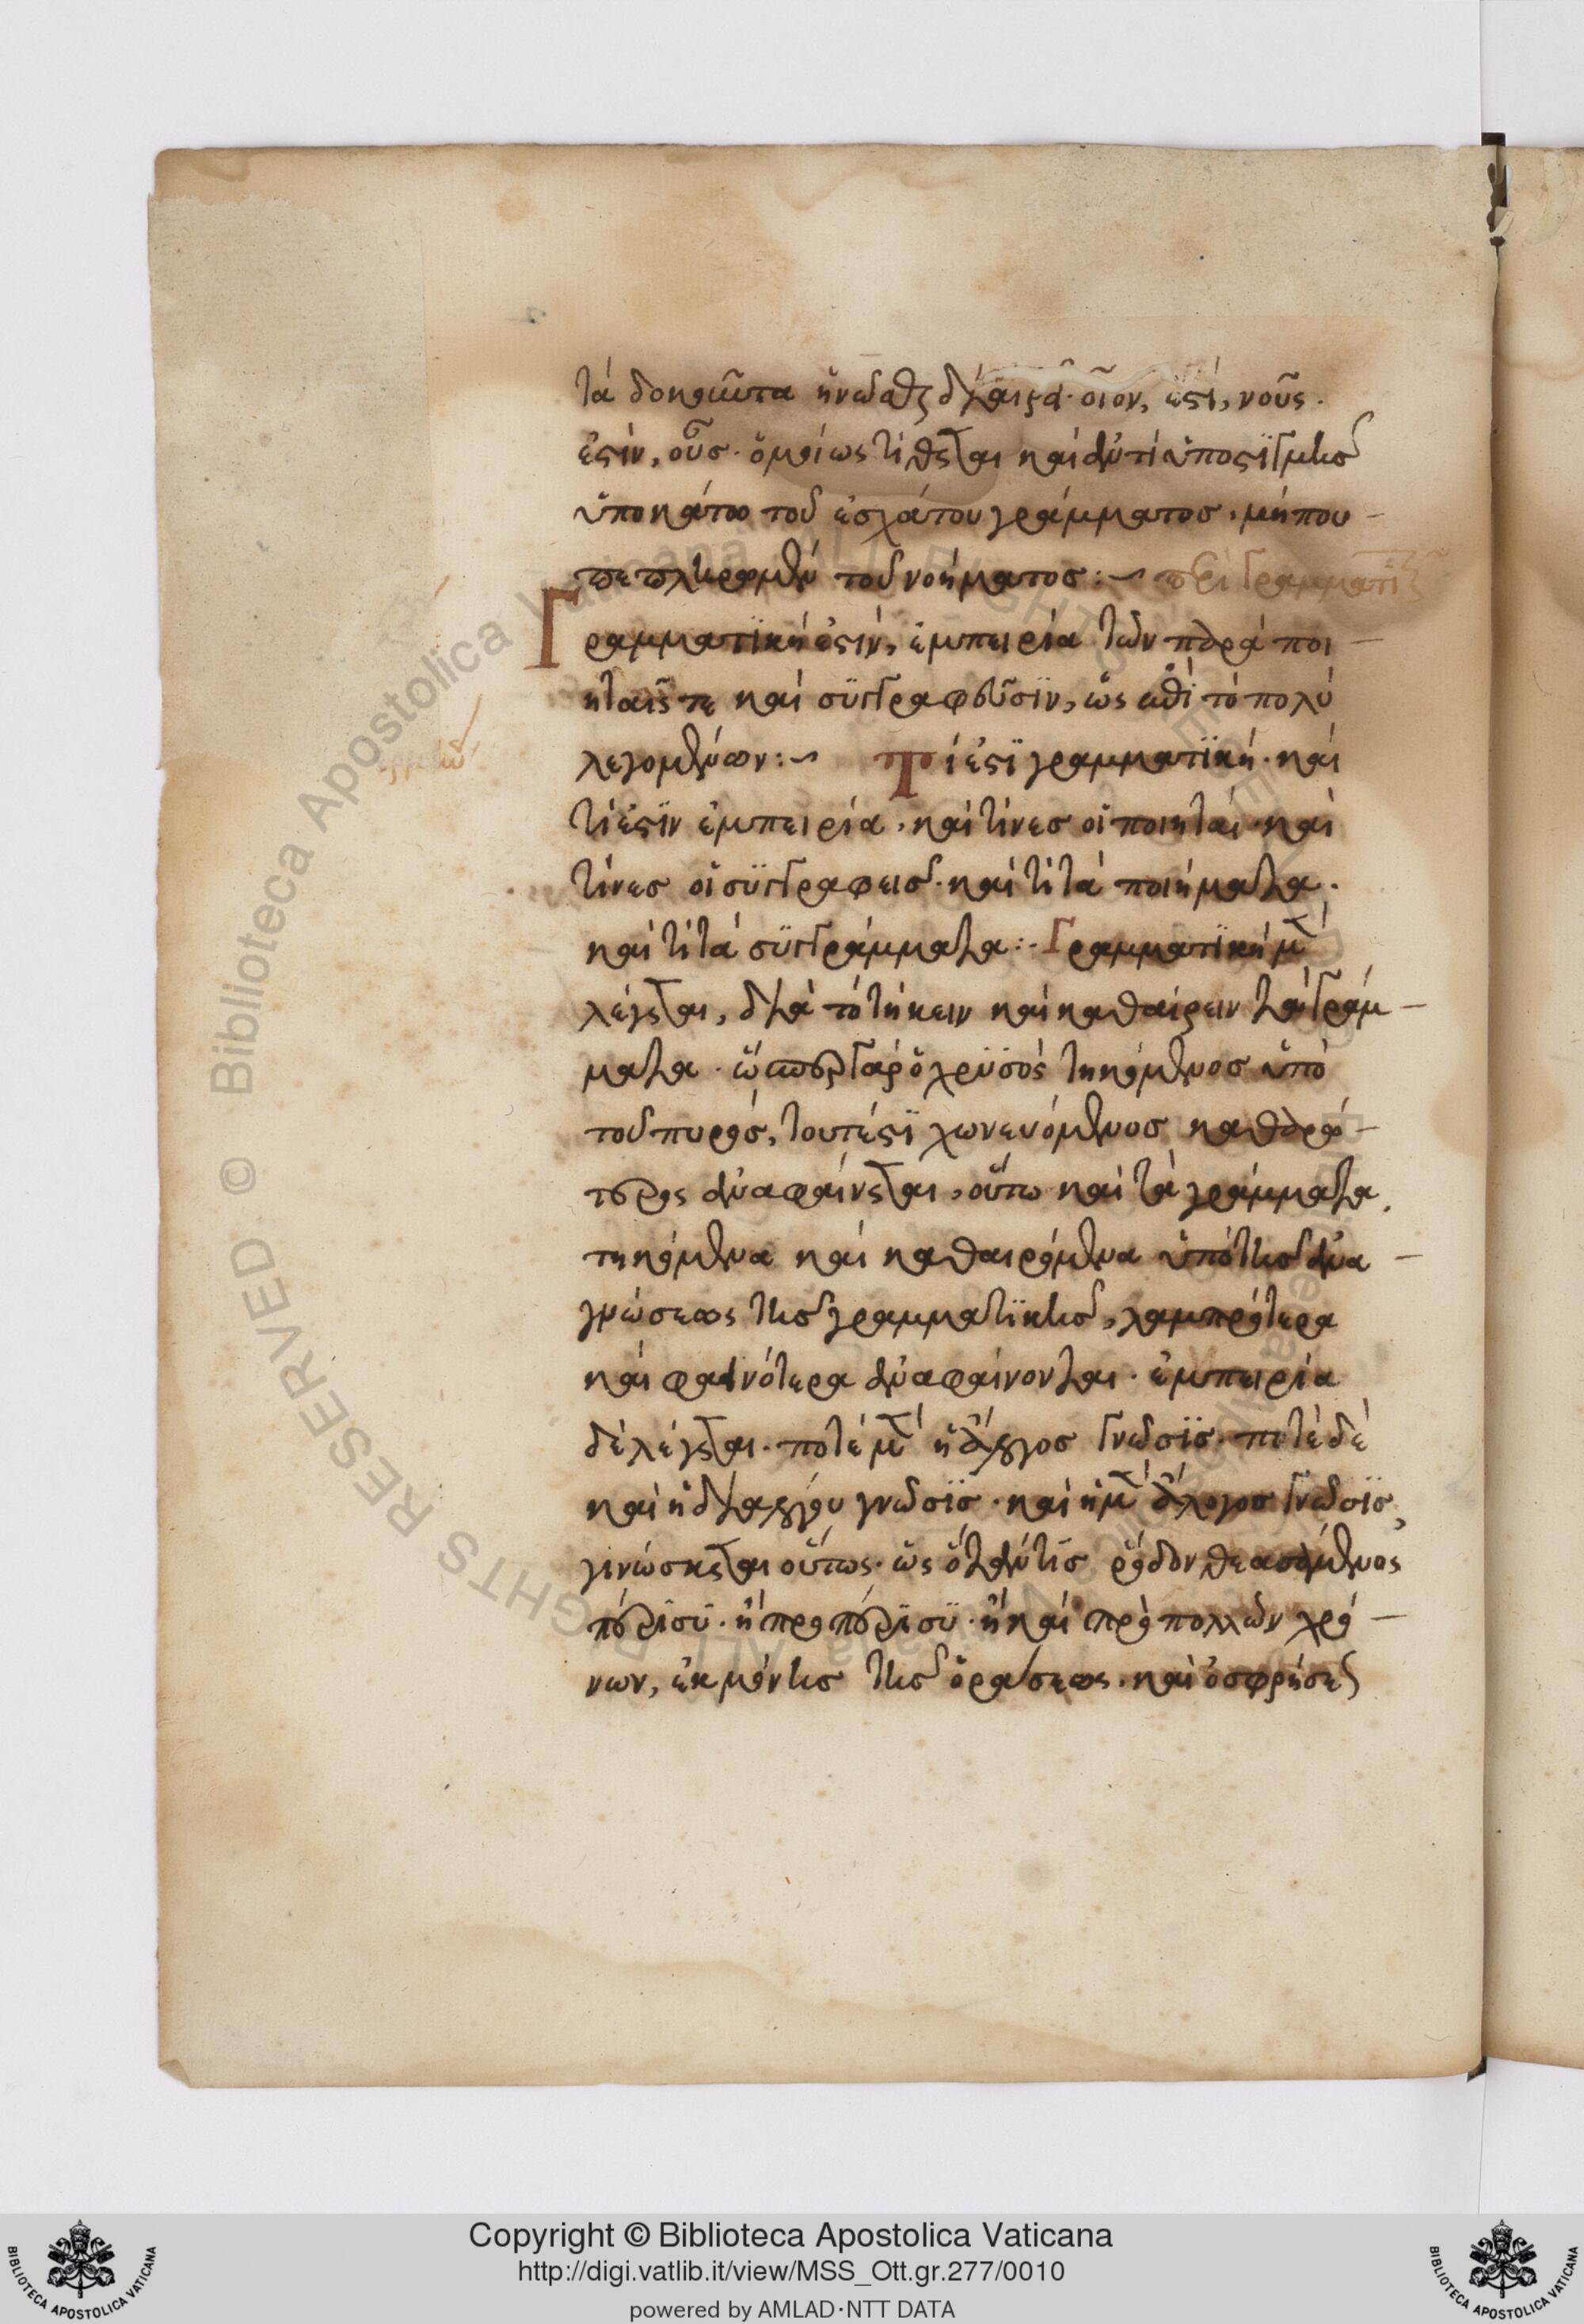 τὰ δοκοῦντα ἡνῶσθαι διαιρεῖ· οἷον, ἐστὶ, νοῦς.
ἐστὶν, οὖς. ὁμοίως τίθεται καὶ ἀντὶ ὑποστιγμῆς
ὑποκάτω τοῦ ἐσχάτου γράμματος. μήπου
πεπληρωμένου τοῦ νοήματος:~ περὶ γραμματικῆς
Γραμματϊκή ἐστὶν, ἐμπειρία τῶν παρὰ ποι
ηταῖς τε καὶ σϋγγραφεῦσϊν, ὡς ἐπὶ τὸ πολὺ
λεγομένων:~ Τί ἐστϊ γραμματϊκή. καὶ
τί ἐστϊν ἐμπειρία. καὶ τίνες οἱ ποιηταί. καὶ
τίνες οἱ σϋγγραφεις. καὶ τί τὰ ποιήματα.
καὶ τί τὰ σϋγγράμματα:· Γραμματϊκή μὲν
λέγεται, διὰ τὸ τήκειν καὶ καθαίρειν τὰ γράμ
ματα. ὥσπερ γὰρ ὁ χρϋσὸς τηκόμενος ὑπὸ
τοῦ πυρός, τουτέστϊ χωνευόμενος καθαρώ
τερος ἀναφαίνεται, οὕτω καὶ τὰ γράμματα.
τηκόμενα καὶ καθαιρόμενα ὑπὸ τῆς ἀνα
γνώσεως τῆς γραμματϊκῆς, λαμπρότερα
καὶ φαινότερα ἀναφαίνονται. ἐμπειρία
δὲ λέγεται. ποτὲ μὲν ἡ ἄλογος γνῶσϊς. ποτὲ δὲ
καὶ ἡ διὰ λόγου γνῶσϊς. καὶ ἡ μὲν ἄλογος γνῶσϊς,
γινώσκεται οὕτως. ὡς ὅταν τὶς ῥόδον θεασάμενος
πέρϊσϋ. ἢ πρὸ πέρϊσϋ. ἢ καὶ πρὸ πολλῶν χρό
νων, ἐκ μόνης τῆς ὁράσεως. καὶ ὀσφρήσεως
Copyright © Biblioteca Apostolica Vaticana
http://digi.vatlib.it/view/MSS_Ott.gr.277/0010
powered by AMLAD·NTT DATA
BIBLIOTECA APOSTOLICA VATICANA
BIBLIOTECA APOSTOLICA VATICANA